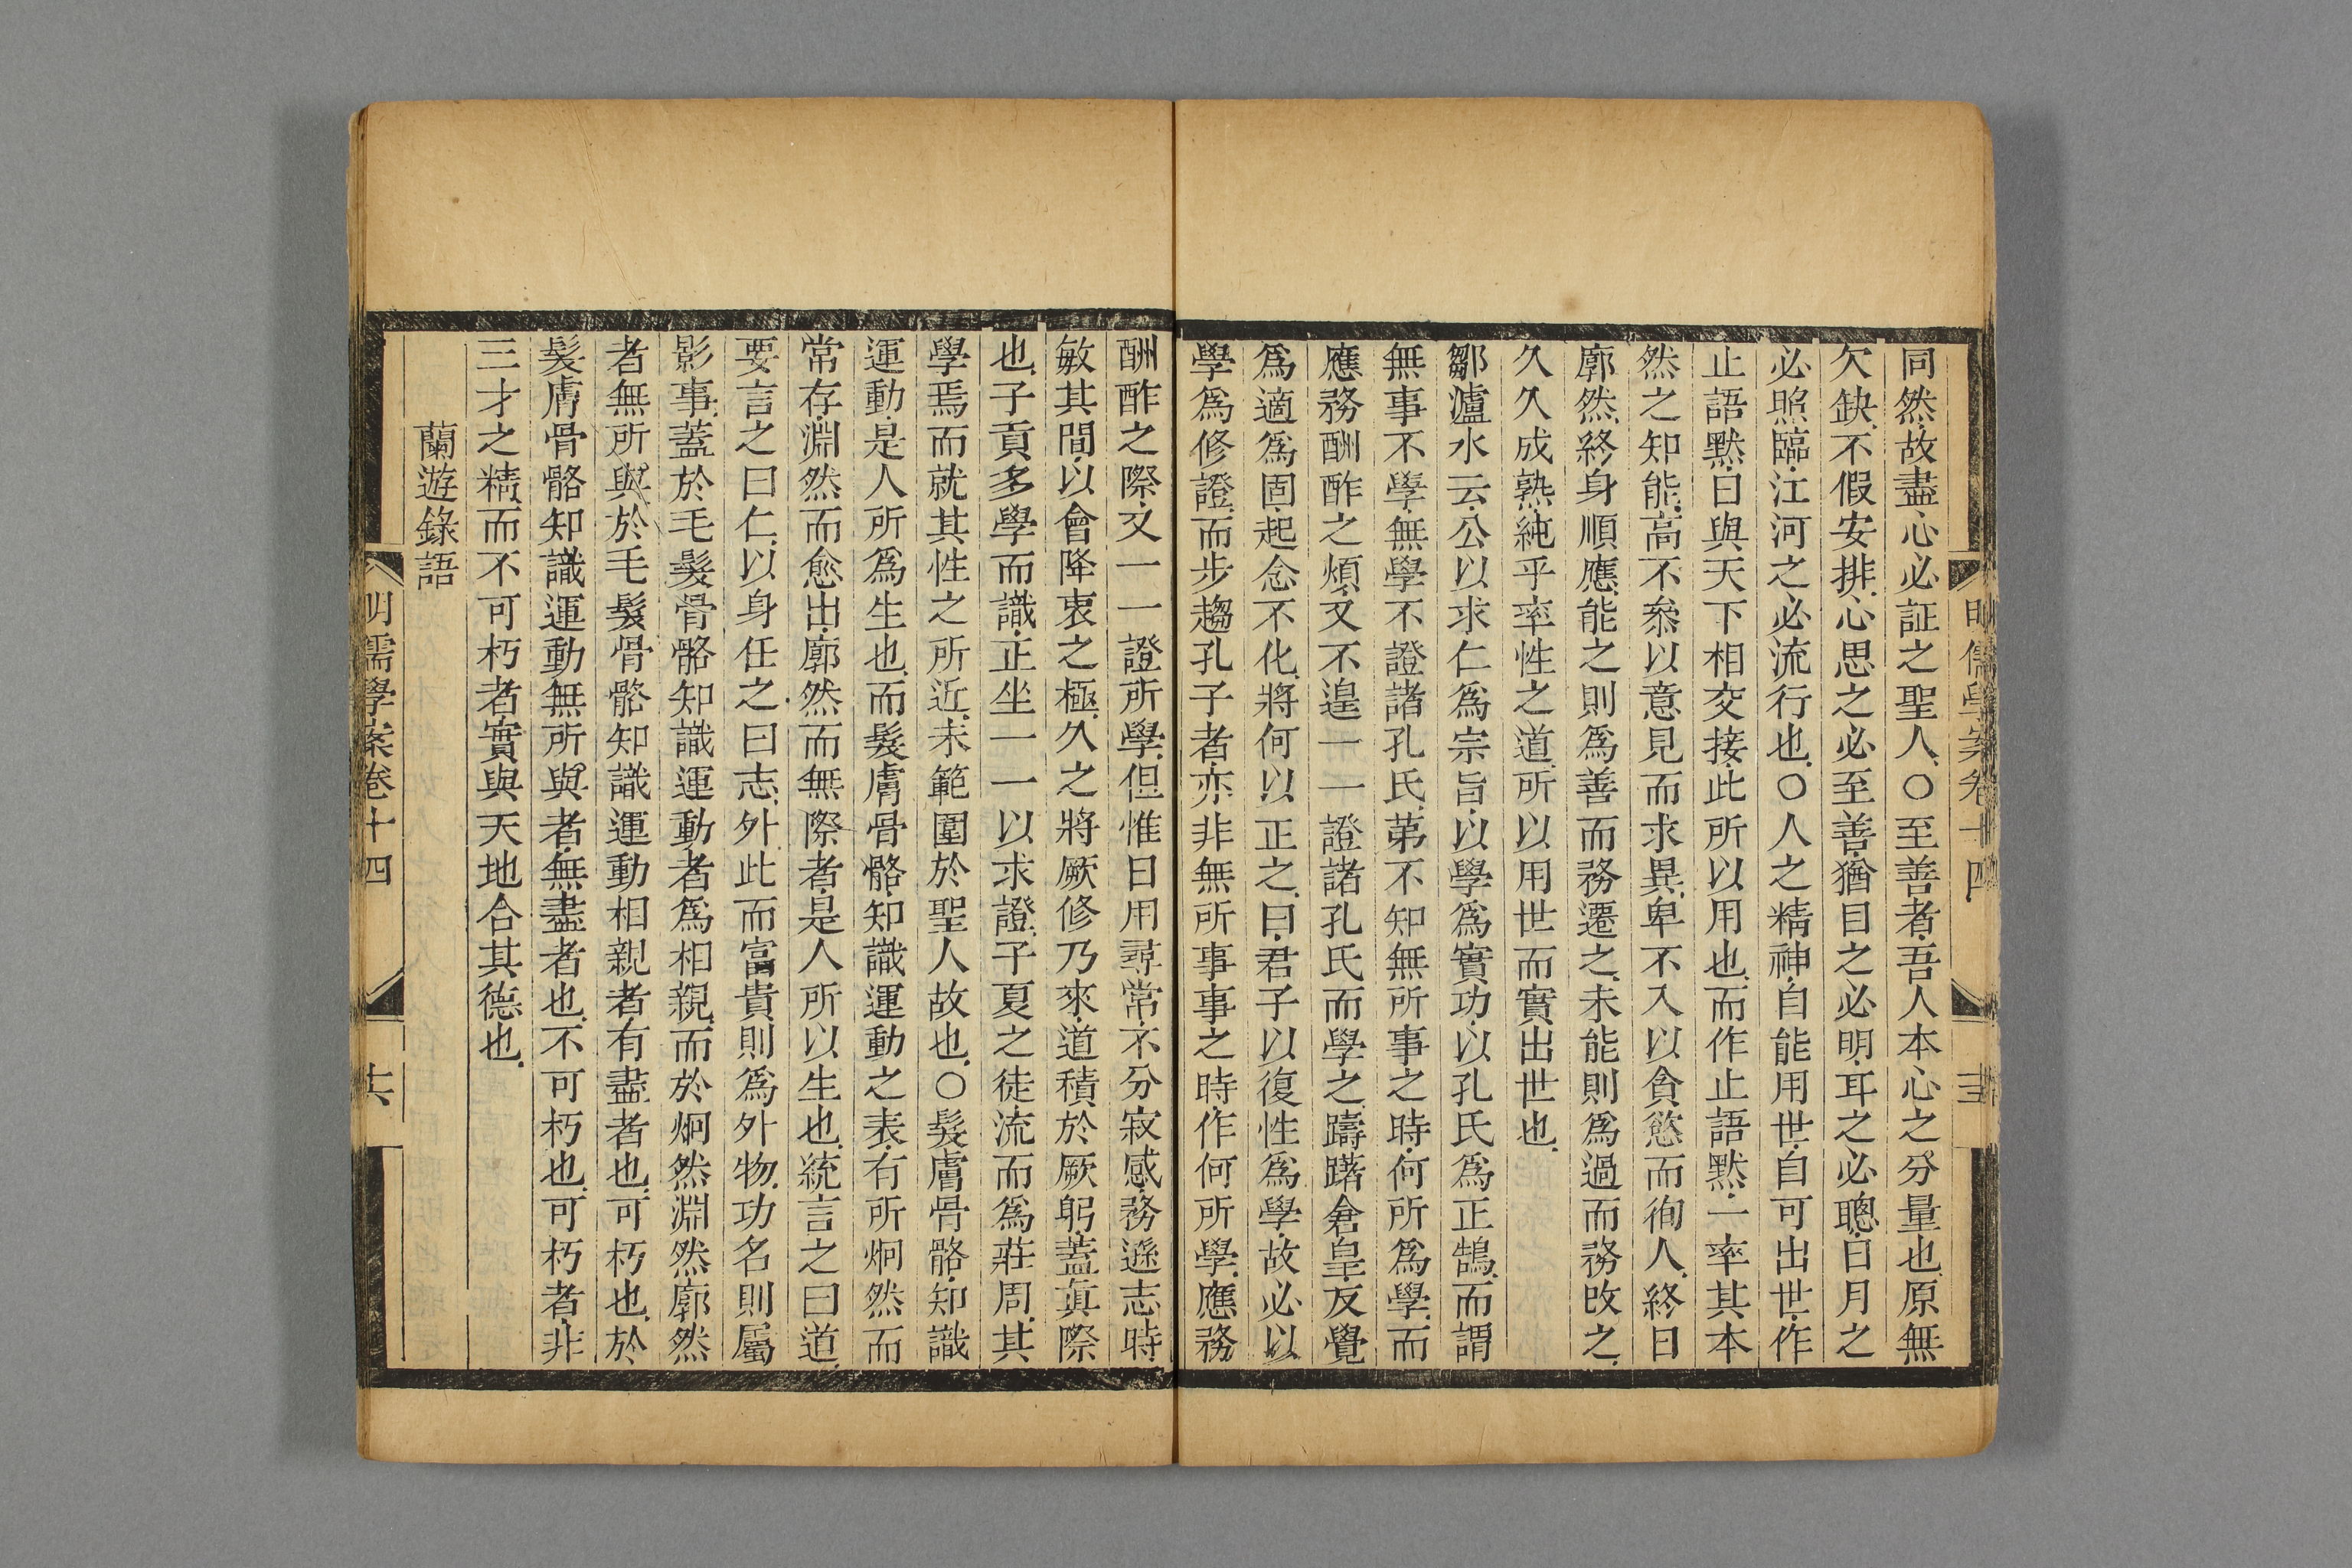 明儒學案卷十四
同然故盡心必証之聖人○至善者吾人本心之分量也原無
欠缺不假安排心思之必至善猶目之必明耳之必聰日月之
必照臨江河之必流行也○人之精神自能用世自可出世作
止語默日與天下相交接此所以用也而作止語默一率其本
然之知能高不叅以意見而求異卑不入以貪慾而徇人終日
廓然終身順應能之則爲善而務遷之未能則爲過而務改之
久久成熟純乎率性之道所以用世而實出世也
鄒瀘水云公以求仁爲宗旨以學爲實功以孔氏爲正鵠而謂
無事不學無學不證諸孔氏第不知無所事之時何所爲學而
應務酬酢之煩又不遑一一證諸孔氏而學之躊躇倉皇反覺
爲適爲固起念不化將何以正之曰君子以復性爲學故必以
學爲修證而步趨孔子者亦非無所事事之時作何所學應務
酬酢之際又一一證所學但惟日用尋常不分寂感務遜志時
敏其間以會降衷之極久之將厥修乃來道積於厥躬蓋眞際
也子貢多學而識正坐一一以求證子夏之徒流而爲莊周其
學焉而就其性之所近未範圍於聖人故也○髮膚骨骼知識
運動是人所爲生也而髮膚骨骼知識運動之表有所炯然而
常存淵然而愈出廓然而無際者是人所以生也統言之曰道
要言之曰仁以身任之曰志外此而富貴則爲外物功名則屬
影事蓋於毛髮骨骼知識運動者爲相親而於炯然淵然廓然
者無所與於毛髮骨骼知識運動相親者有盡者也可朽也於
髮膚骨骼知識運動無所與者無盡者也不可朽也可朽者非
三才之精而不可朽者實與天地合其德也
蘭遊錄語
明儒學案卷十四
共